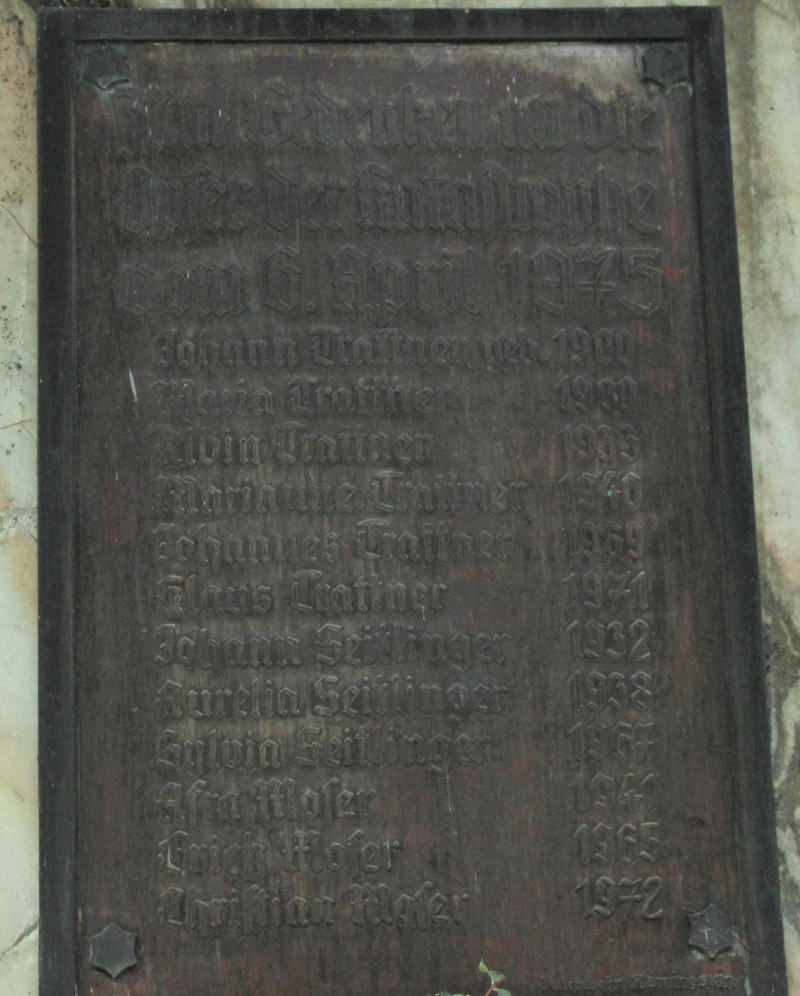 Zum Gedenken an die
Opfer der Katastrophe
vom 6. April 1975
Johann Trattner geb. 1900
Maria Trattner 1900
Albin Trattner 1933
Marianne Trattner 1940
Johannes Trattner 1969
Klaus Trattner 1971
Johann Seitlinger 1932
Aurelia Seitlinger 1938
Sylvia Seitlinger 1967
Afra Moser 1941
Erich Moser 1965
Christian Moser 1972